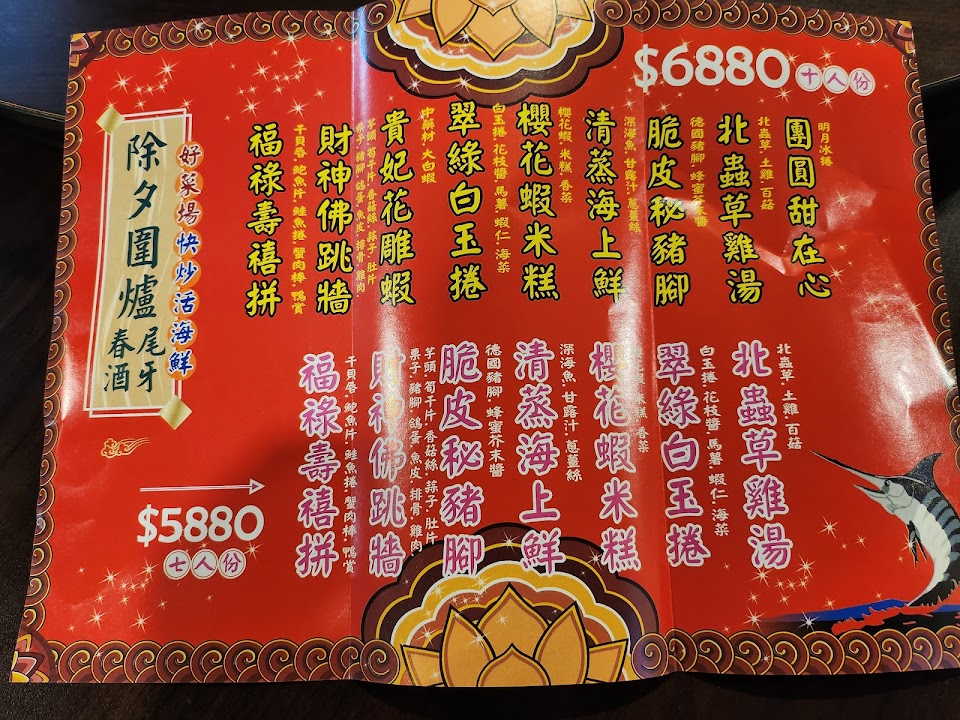 好菜場快炒活海鮮
除夕圍爐
尾牙
春酒
$6880十人份
福祿壽禧拼
干貝唇.鮑魚片.鮭魚捲.蟹肉棒.鴨賞
財神佛跳牆
芋頭.筍干片.香菇絲.蒜子.肚片
栗子.豬腳.鴿蛋.魚皮.排骨.雞肉
貴妃花雕蝦
中藥材.大白蝦
翠綠白玉捲
白玉捲.花枝醬.馬薯.蝦仁.海菜
櫻花蝦米糕
櫻花蝦.米糕.香菜
清蒸海上鮮
深海魚.甘露汁.蔥薑絲
脆皮秘豬腳
德國豬腳.蜂蜜芥末醬
北蟲草雞湯
北蟲草.土雞.百菇
團圓甜在心
明月冰捲
$5880
七人份
福祿壽禧拼
干貝唇.鮑魚片.鮭魚捲.蟹肉棒.鴨賞
財神佛跳牆
芋頭.筍干片.香菇絲.蒜子.肚片
栗子.豬腳.鴿蛋.魚皮.排骨.雞肉
脆皮秘豬腳
德國豬腳.蜂蜜芥末醬
清蒸海上鮮
深海魚.甘露汁.蔥薑絲
櫻花蝦米糕
米糕.香菜
翠綠白玉捲
白玉捲.花枝醬.馬薯.蝦仁.海菜
北蟲草雞湯
北蟲草.土雞.百菇